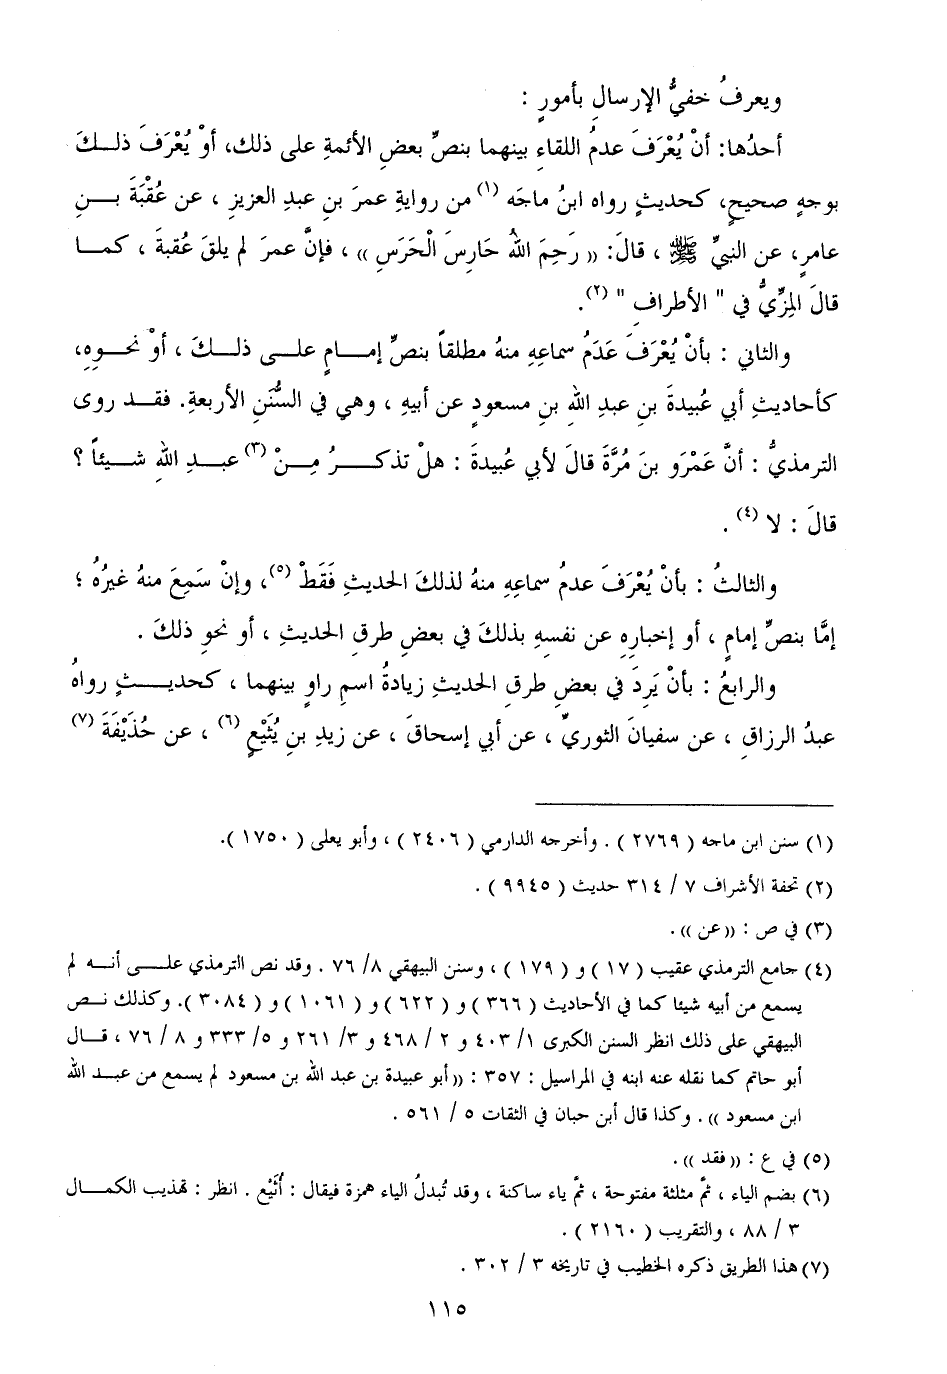 ويعرفُ خفيُّ الإرسالِ بأمورٍ :
أحدُها: أنْ يُعْرَفَ عدمُ اللقاءِ بينهما بنصِّ بعضِ الأئمةِ على ذلك، أوْ يُعْرَفَ ذلك
بوجهٍ صحيحٍ، كحديثٍ رواه ابنُ ماجَه (١) من روايةِ عمرَ بنِ عبدِ العزيزِ ، عن عُقْبَةَ بنِ
عامرٍ، عن النبيِّ ﷺ ، قالَ: (( رَحِمَ اللهُ حَارِسَ الْحَرَسِ )) ، فإنَّ عمرَ لم يلقَ عُقبةَ ، كما
قالَ المِزِّيُّ في " الأطرافِ " (٢).
والثاني : بأنْ يُعْرَفَ عَدَمُ سماعِهِ منهُ مطلقاً بنصِّ إمامٍ على ذلكَ ، أو نحوِهِ،
كأحاديثِ أبي عُبيدةَ بنِ عبدِ اللهِ بنِ مسعودٍ عن أبيهِ ، وهي في السُّنَنِ الأربعةِ. فقد روى
الترمذيُّ : أنَّ عَمْرَو بنَ مُرَّةَ قالَ لأبي عُبيدةَ : هلْ تذكرُ مِنْ (٣) عبدِ اللهِ شيئاً ؟
قالَ : لا (٤) .
والثالثُ : بأنْ يُعْرَفَ عدمُ سماعِهِ منهُ لذلكَ الحديثِ فَقَطْ (٥)، وإنْ سَمِعَ منهُ غيرُهُ ؛
إمَّا بنصِّ إمامٍ ، أو إخبارِهِ عن نفسِهِ بذلكَ في بعضِ طرقِ الحديثِ ، أو نحوِ ذلكَ .
والرابعُ : بأنْ يَرِدَ في بعضِ طرقِ الحديثِ زيادةُ اسمِ راوٍ بينهما ، كحديثٍ رواهُ
عبدُ الرزاقِ ، عن سفيانَ الثوريِّ ، عن أبي إسحاقَ ، عن زيدِ بنِ يُثَيْعٍ (٦) ، عن حُذَيْفَةَ (٧)
(١) سنن ابن ماجه ( ٢٧٦٩ ) . وأخرجه الدارمي ( ٢٤٠٦ ) ، وأبو يعلى ( ١٧٥٠ ).
(٢) تحفة الأشراف ٧ / ٣١٤ حديث ( ٩٩٤٥ ) .
(٣) في ص : (( عن )).
(٤) جامع الترمذي عقيب ( ١٧ ) و ( ١٧٩ ) ، وسنن البيهقي ٨/ ٧٦ . وقد نص الترمذي على أنه لم
يسمع من أبيه شيئا كما في الأحاديث ( ٣٦٦ ) و ( ٦٢٢ ) و ( ١٠٦١ ) و ( ٣٠٨٤ ). وكذلك نص
البيهقي على ذلك انظر السنن الكبرى ١/ ٤٠٣ و ٢ / ٤٦٨ و ٣/ ٢٦١ و ٥/ ٣٣٣ و ٨ / ٧٦ ، قال
أبو حاتم كما نقله عنه ابنه في المراسيل : ٣٥٧ : (( أبو عبيدة بن عبد الله بن مسعود لم يسمع من عبد الله
ابن مسعود )) . وكذا قال أبن حبان في الثقات ٥ / ٥٦١ .
(٥) في ع : (( فقد )).
(٦) بضم الياء ، ثمَّ مثلثة مفتوحة ، ثمَّ ياء ساكنة ، وقد تُبدلُ الياء همزة فيقال : أُثَيْع . انظر : تهذيب الكمال
٣ / ٨٨ ، والتقريب ( ٢١٦٠ ) .
(٧) هذا الطريق ذكره الخطيب في تاريخه ٣ / ٣٠٢ .
١١٥